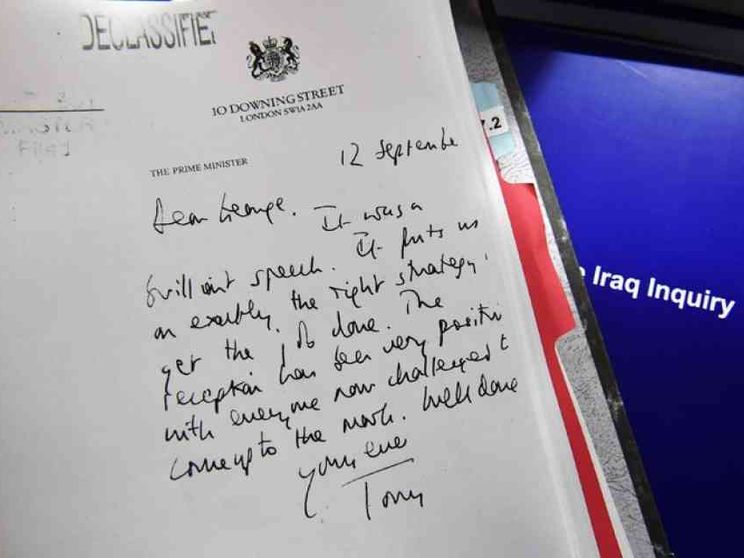 DECLASSIFIED
10 DOWNING STREET
LONDON SW1A 2AA
THE PRIME MINISTER
12 September
Dear George. It was a
brilliant speech. It puts us
on exactly the right strategy
get the job done. The
reception has been very positive
with everyone now challenged to
come up to the mark. Well done
Yours ever
Tony
7.2
Iraq Inquiry